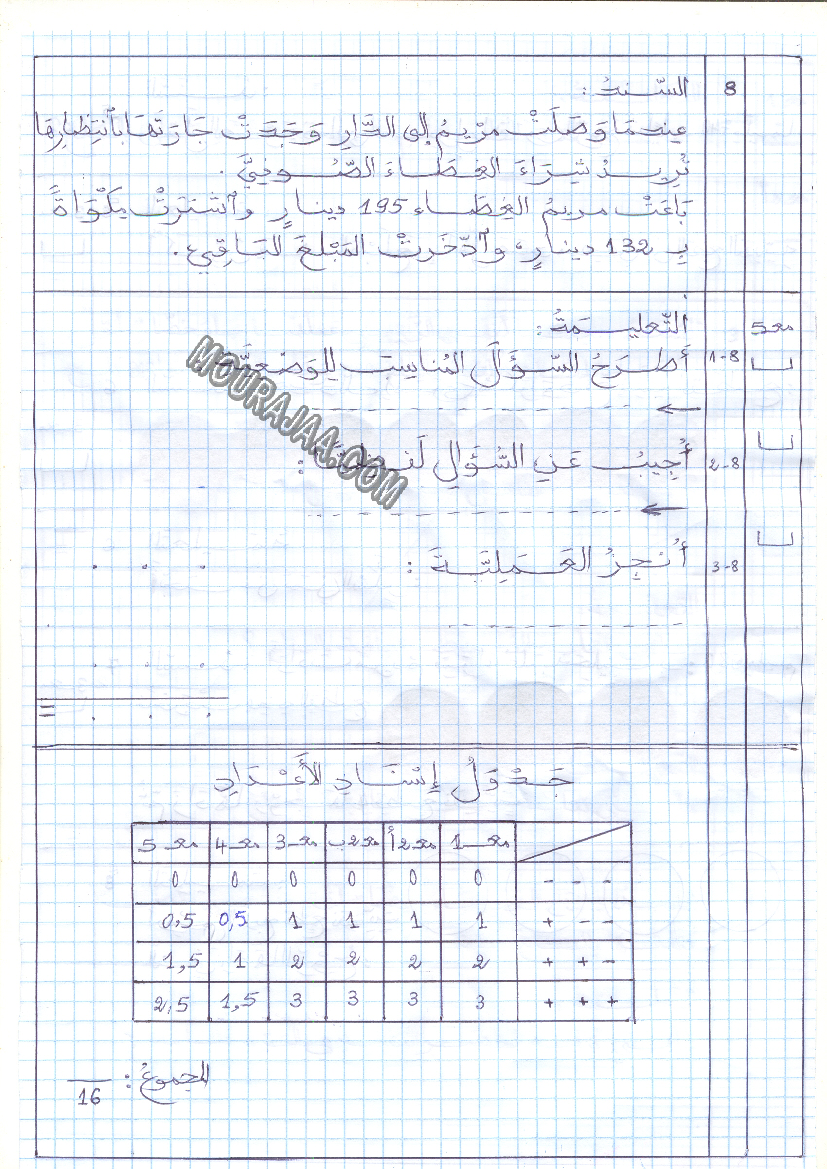 8 السّند :
عِندمَا وَصَلَتْ مرْيمُ إلى الدَّارِ وَجَدَتْ جَارَتَهَا بِٱنتِظارِهَا
تُرِيدُ شِرَاءَ الغِطَاءَ الصُّوفِيَّ .
بَاعَتْ مريمُ الغِطَاء 195 دينارٍ وٱشْتَرَتْ مِكْوَاةً
بِ 132 دينارٍ، وٱدّخَرتْ المَبْلغَ البَاقِي .
مع5 التّعليمَةُ :
1-8 أَطرَحُ السّؤَالَ المُناسِبَ لِلوَضْعيَّة
MOURAJAA.COM
2-8 أُجِيبُ عَنِ السُّؤَالِ :
3-8 أُنْجِزُ العَمَلِيَّةَ :
=
جَدْوَلُ إسْنَادِ الأَعْدَادِ
مع1 مع2أ مع2ب مع3 مع4 مع5
- - - 0 0 0 0 0 0
+ - - 1 1 1 1 0,5 0,5
+ + - 2 2 2 2 1 1,5
+ + + 3 3 3 3 1,5 2,5
المجموعُ :
16